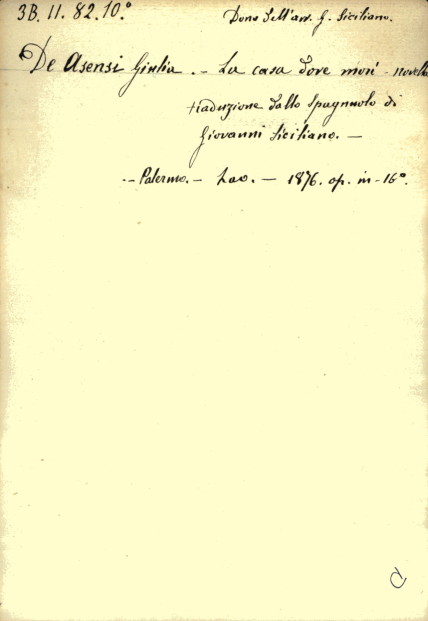 3B. 11. 82. 10.°
Dono dell'avv. G. Siciliano.
De Asensi Giulia. - La casa dove morì - novella
traduzione dallo Spagnuolo di
Giovanni Siciliano. -
- Palermo. - Lao. - 1876. op. in-16°.